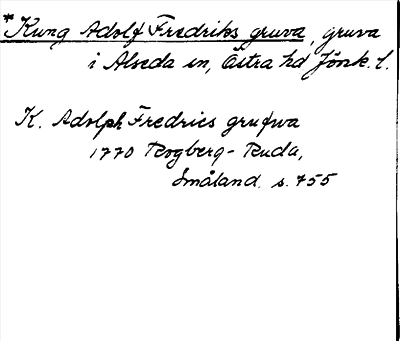 *Kung Adolf Fredriks gruva, gruva
i Alseda sn, Östra hd Jönk. l.
K. Adolph Fredrics grufwa
1770 Rogberg-Ruda,
Småland. s. 755